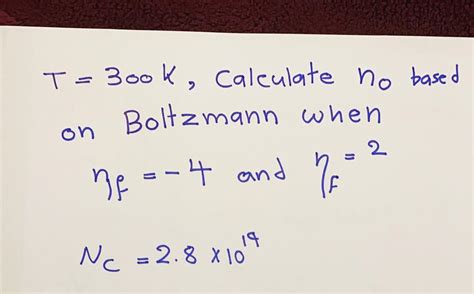 T = 300 K, Calculate n₀ based
on Boltzmann when
η_F = -4 and η_F = 2
N_C = 2.8 × 10¹⁹